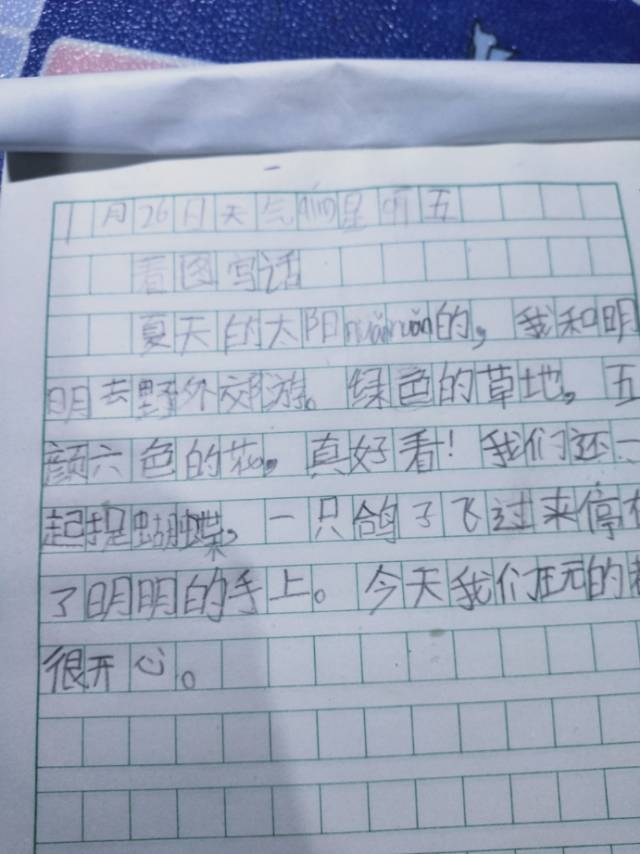 1月26日天气 星 五
看图写话
夏天的太阳nuǎnnuǎn的，我和明
明去野外郊游。绿色的草地，五
颜六色的花，真好看！我们还一
起捉蝴蝶，一只鸽子飞过来停在
了明明的手上。今天我们玩的
很开心。